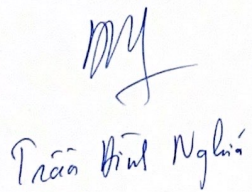 Trần Đình Nghĩa